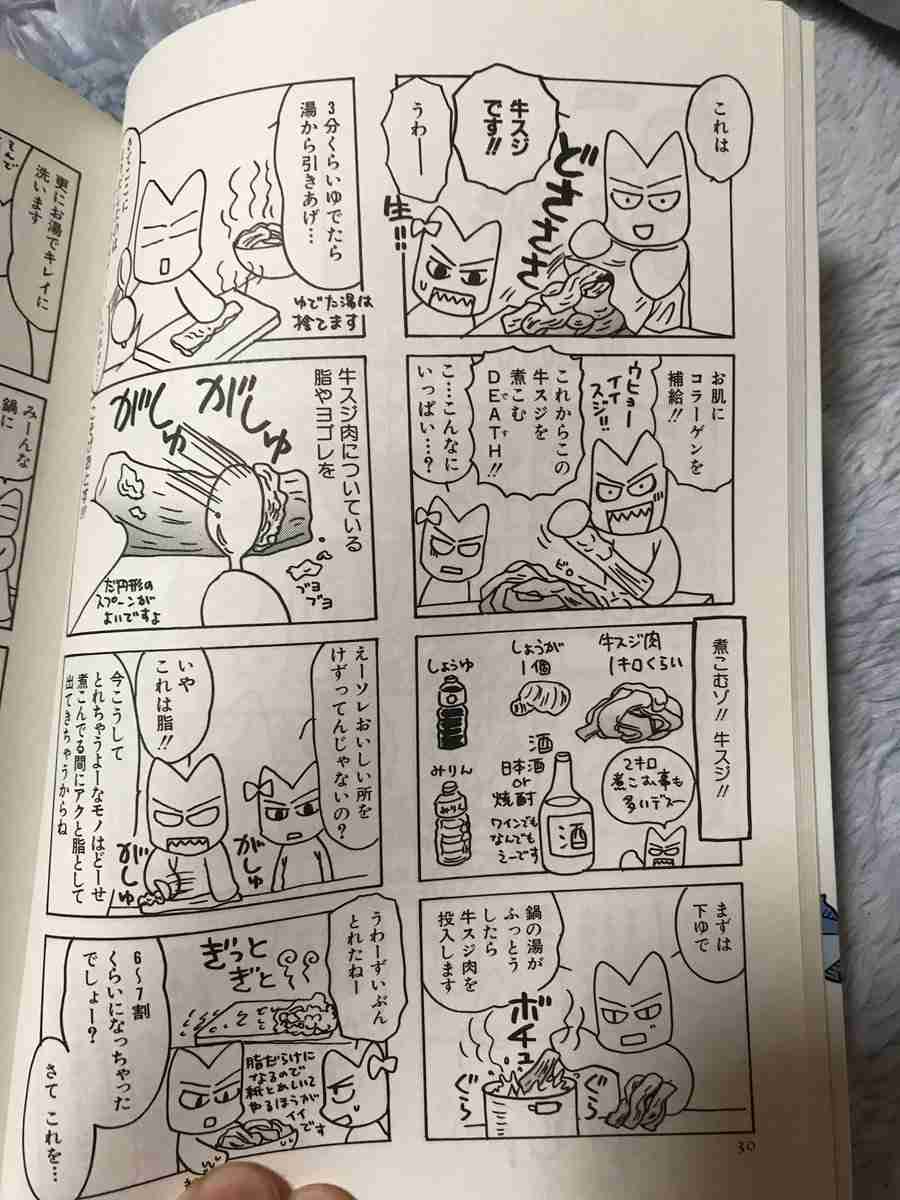 これは
牛スジ
です!!
うわー
どさささささ
生!!
お肌に
コラーゲンを
補給!!
ウヒョー
イイ
スジ!!
これからこの
牛スジを
煮こむ
DEATH!!
です
こ…こんなに
いっぱい…?
ピロ
煮こむゾ!!牛スジ!!
牛スジ肉
1キロくらい
しょうが
1個
しょうゆ
2キロ
煮こむ事も
多いデスー
酒
日本酒
or
焼酎
ワインでも
なんでも
えーです
酒
みりん
みりん
まずは
下ゆで
鍋の湯が
ふっとう
したら
牛スジ肉を
投入します
ボチュ
ぐら
ぐら
30
3分くらいゆでたら
湯から引きあげ…
ゆでた湯は
捨てます
牛スジ肉についている
脂やヨゴレを
がしゅ
がしゅ
ブヨ
ブヨ
だ円形の
スプーンが
よいですよ
えーソレおいしい所を
けずってんじゃないの?
いや
これは脂!!
今こうして
とれちゃうよーなモノはどーせ
煮こんでる間にアクと脂として
出てきちゃうからね
がしゅ
がしゅ
うわーずいぶん
とれたねー
ぎっと
ぎと
6〜7割
くらいになっちゃった
でしょー?
脂だらけに
なるので
紙とかしいて
やるほうが
イイ
です
さて これを…
更にお湯でキレイに
洗います
みーんな
鍋に